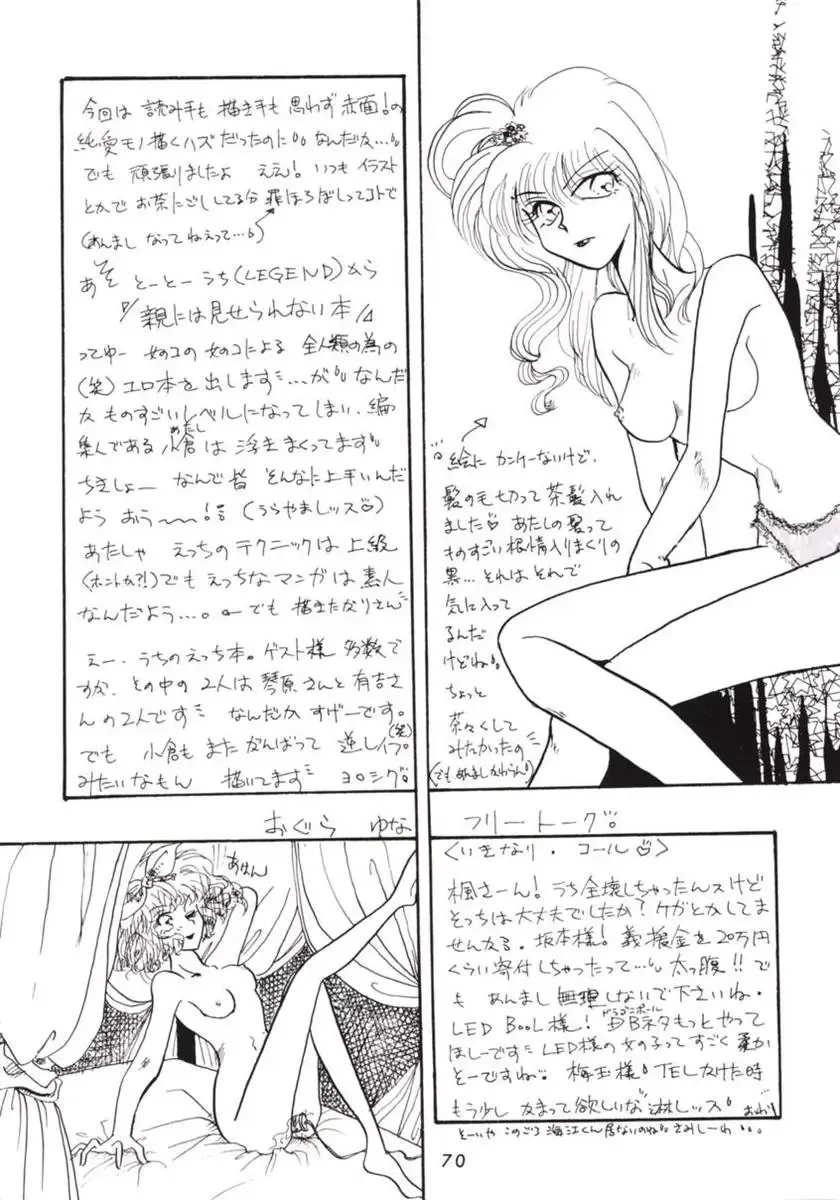 今回は 読み手も 描き手も 思わず 赤面!の
純愛モノ描くハズだったのに なんだか…
でも 頑張りましたよ ええ! いつも イラスト
とかで お茶にごししてる分 罪ほろぼしってコトで
(あんまし なってねえって…)
あそ とーとー うち(LEGEND)から
『親には見せられない本』
ってゆー 女のコの女のコによる 全人類の為の
(笑)エロ本を出します…が なんだ
か ものすごいレベルになってしまい、編
集人である 小倉(あたし)は 浮きまくってます
ちきしょー なんで皆 そんなに上手いんだ
よう おう〜〜! (うらやましッス♡)
あたしゃ えっちのテクニックは 上級
(ホントか?!)でも えっちなマンガは素人
なんだよう…。でも 描きたがりさん
えー、うちのえっち本。ゲスト様 多数で
すが、その中の2人は 琴原さんと有吉さ
んの2人です なんだか すげーです。
でも 小倉も また がんばって 逆レイプ(笑)
みたいなもん 描いてます ヨロシク。
絵に カンケーないけど、
髪の毛切って 茶髪入れ
ました♡ あたしの髪って
ものすごい根情入りまくりの
黒… それはそれで
気に入って
るんだ
けどね。
ちょっと
茶々くして
みたかったの
(でもあんましかわらん)
おぐら ゆな フリートーク。
<いきなり・コール♡>
あはん
楓さーん! うち全壊しちゃったんスけど
そっちは大丈夫でしたか? ケガとかしてま
せんかる。坂本様! 義援金を20万円
くらい寄付しちゃったって… 太っ腹!! で
も あんまし無理しないで下さいね。
LED BOOL様! DB(ドラゴンボール)ネタもっとやって
ほしーです LED様の女の子ってすごく柔か
そーですね。 梅玉様! TELかけた時
もう少し かまって欲しいな 淋しッス おわり
とーいや このごろ 海江くん居ないのね さみしーわ
70